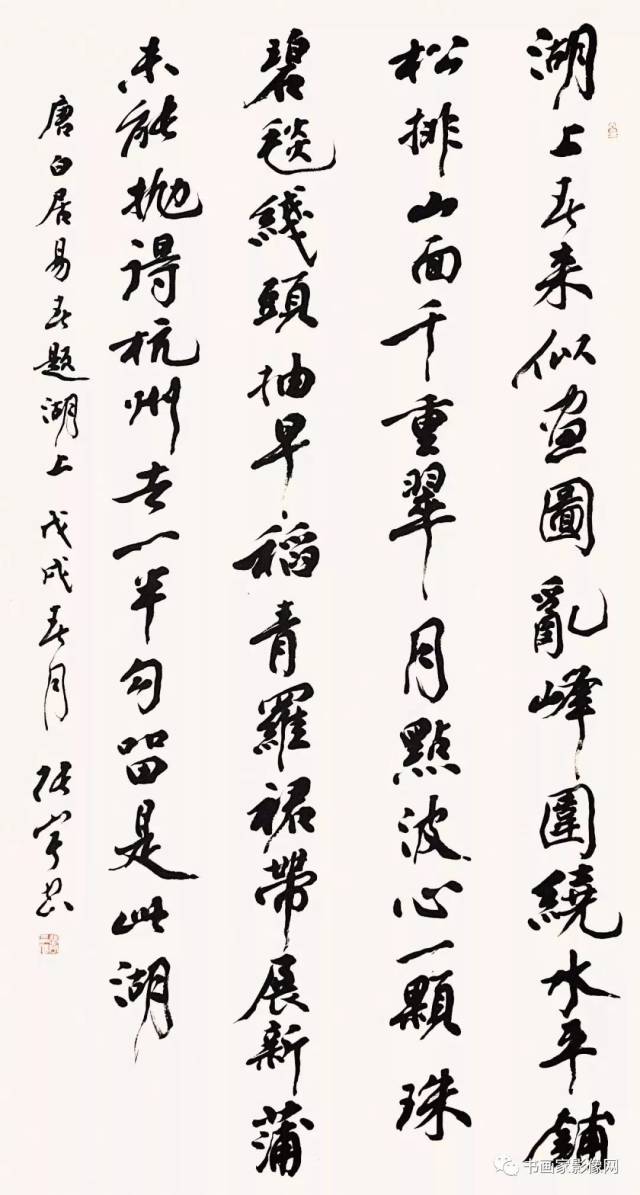 湖上春来似画圖亂峰圍繞水平鋪
松排山面千重翠月點波心一顆珠
碧毯綫頭抽早稻青羅裙帶展新蒲
未能抛得杭州去一半勾留是此湖
唐白居易春题湖上戊戌春月张宇书
书画家影像网